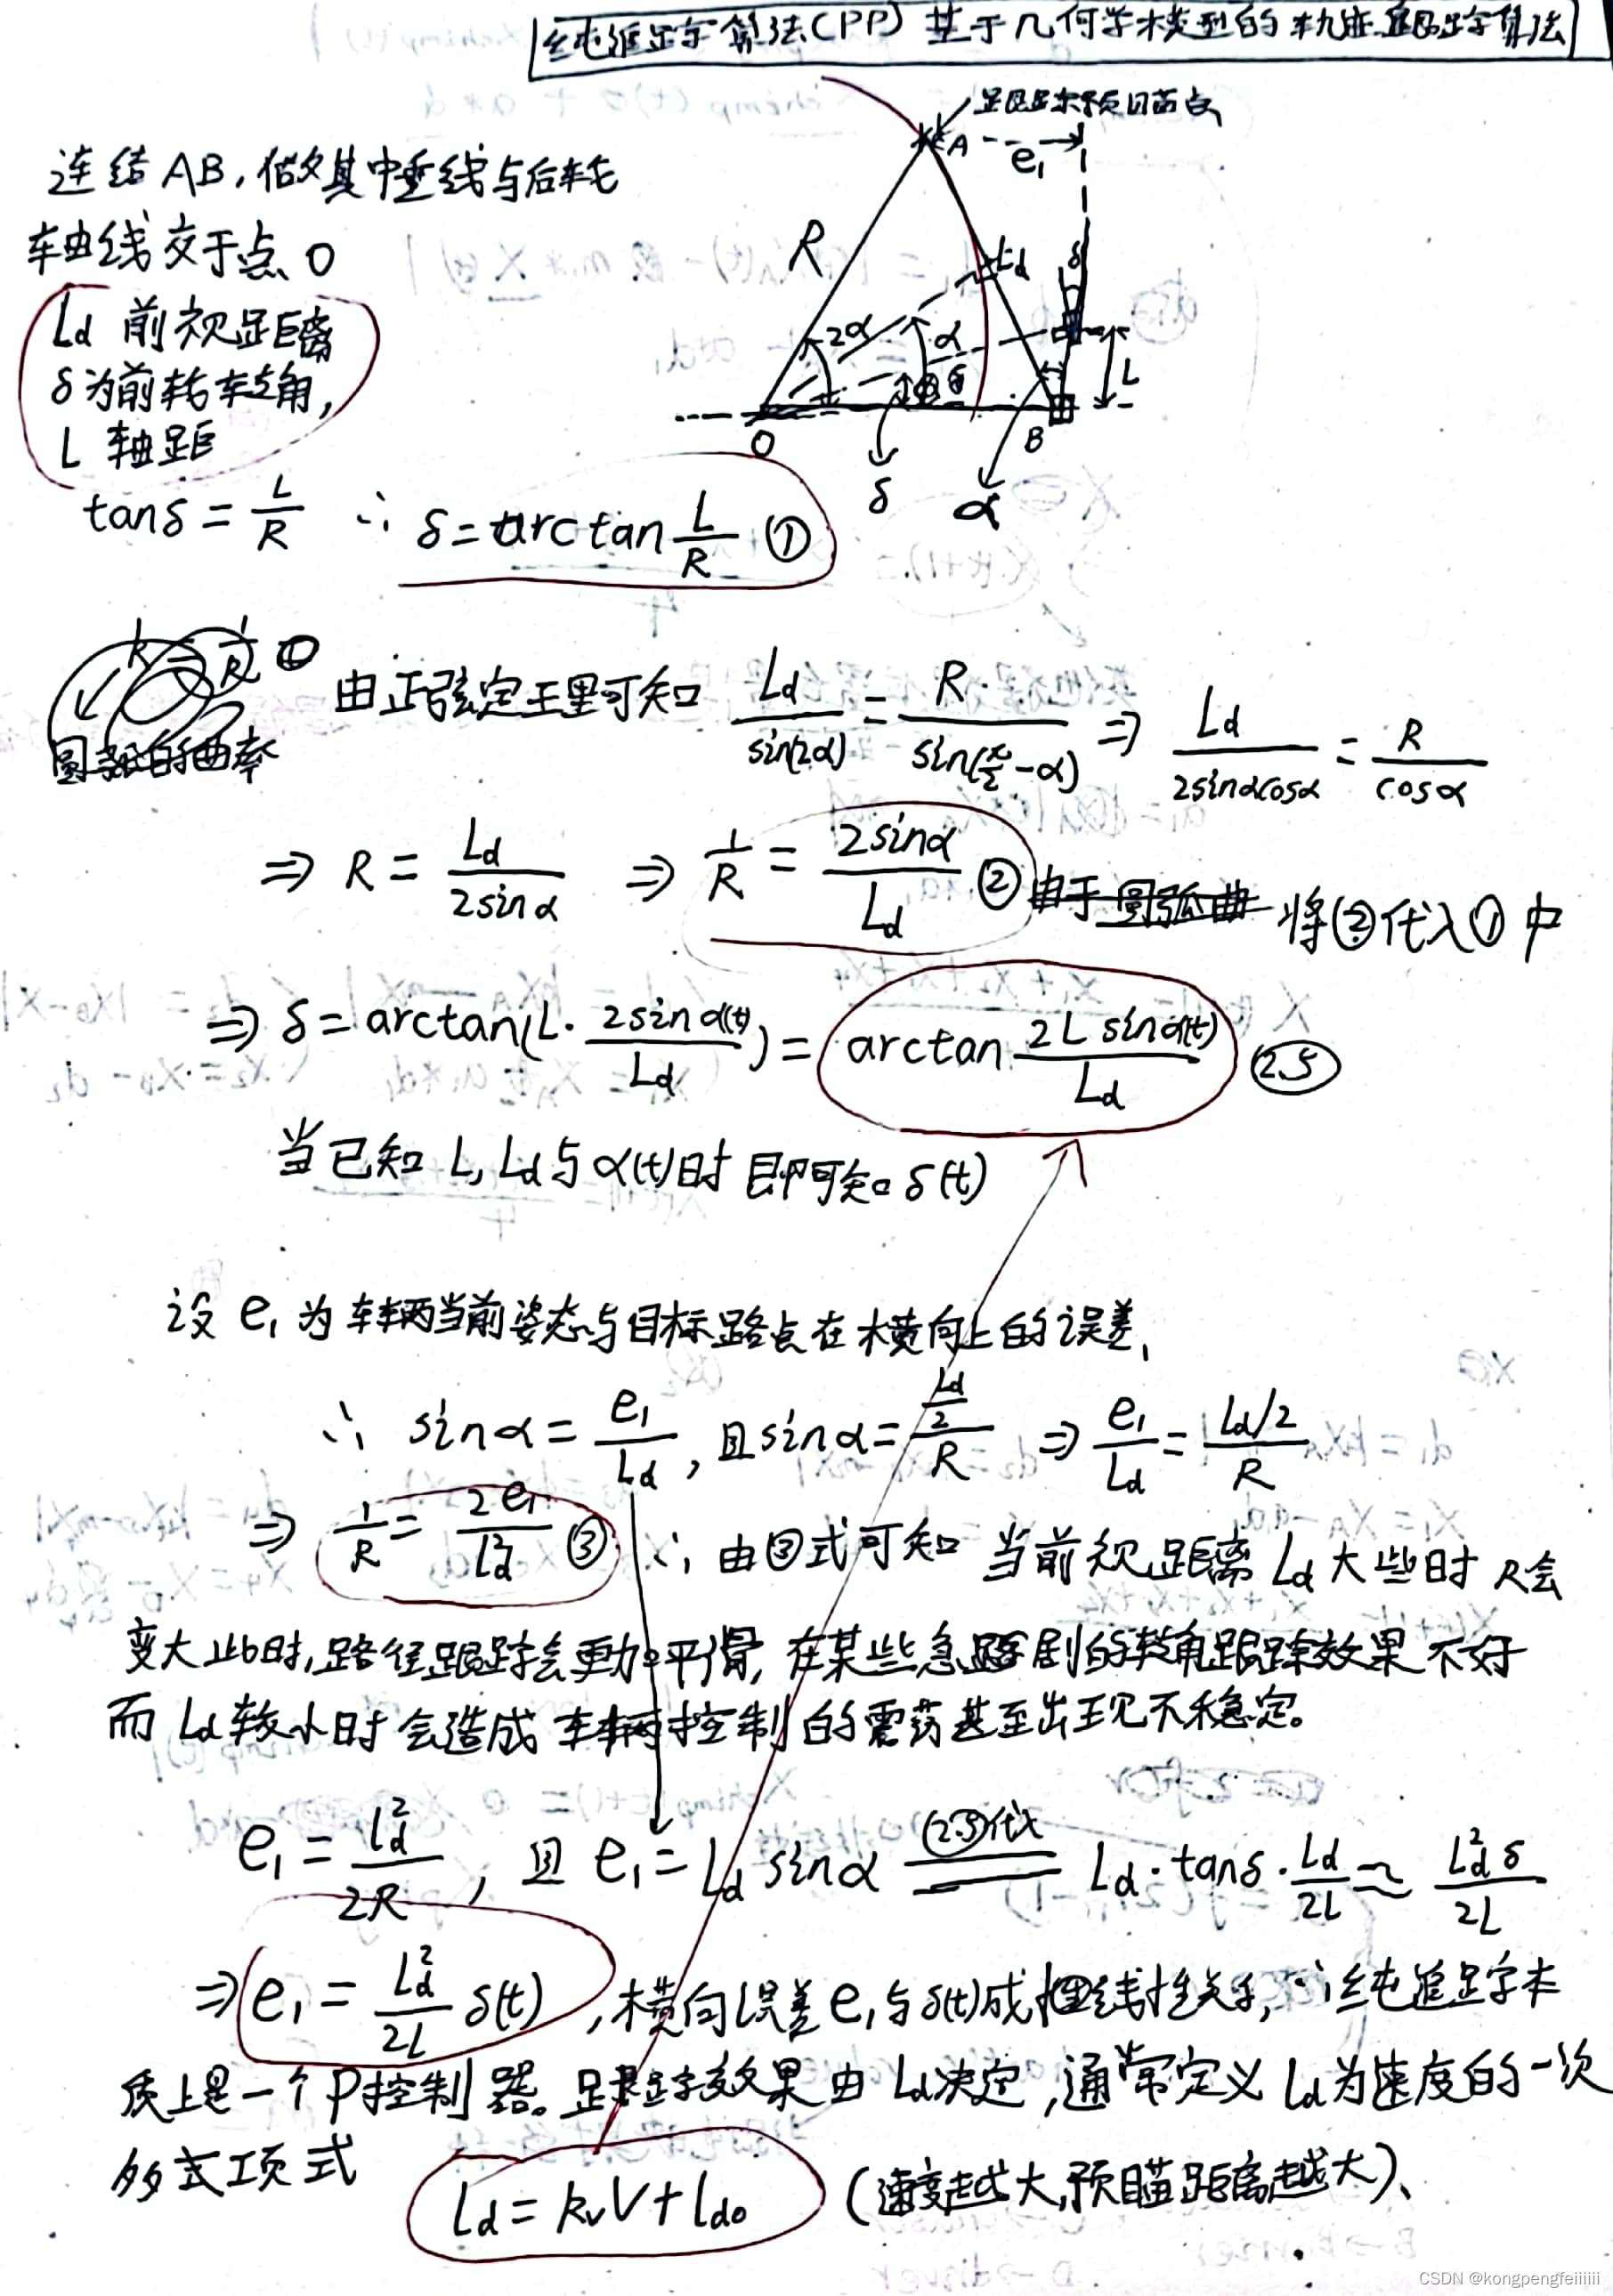 纯追踪算法(PP) 基于几何学模型的轨迹跟踪算法
跟踪预瞄点
A
e₁
连结AB,做其中垂线与后轮
轴线交于点O
R
Ld
δ
2α
α
δ
L
O
B
δ
α
Ld 前视距离
δ为前轮转角,
L 轴距
tanδ = L/R ∴ δ = arctan L/R ①
由正弦定理可知 Ld/sin(2α) = R/sin(π/2-α) ⇒ Ld/2sinαcosα = R/cosα
⇒ R = Ld/2sinα ⇒ 1/R = 2sinα/Ld ② 将②代入①中
⇒ δ = arctan(L · 2sinα(t)/Ld) = arctan 2L sinα(t)/Ld (2.5)
当已知 L, Ld与α(t)时 即可知δ(t)
设 e₁为车辆当前姿态与目标路点在横向上的误差,
∴ sinα = e₁/Ld, 且sinα = (Ld/2)/R ⇒ e₁/Ld = (Ld/2)/R
⇒ 1/R = 2e₁/Ld² ③ ∴ 由③式可知 当前视距离 Ld大些时 R会
变大 此时,路径跟踪会更加平滑,在某些急剧的转角跟踪效果不好
而 Ld较小时会造成车辆控制的震荡甚至出现不稳定。
e₁ = Ld²/2R, 且 e₁ = Ld sinα =(2.5)代入= Ld·tanδ·Ld/2L ≈ Ld²δ/2L
⇒ e₁ = Ld²/2L δ(t), 横向误差e₁与δ(t)成线性关系, ∴纯追踪本
质上是一个P控制器。跟踪效果由Ld决定,通常定义Ld为速度的一次
多式项式
Ld = kvV + ld₀ (速度越大,预瞄距离越大)、
CSDN @kongpengfeiiiiii